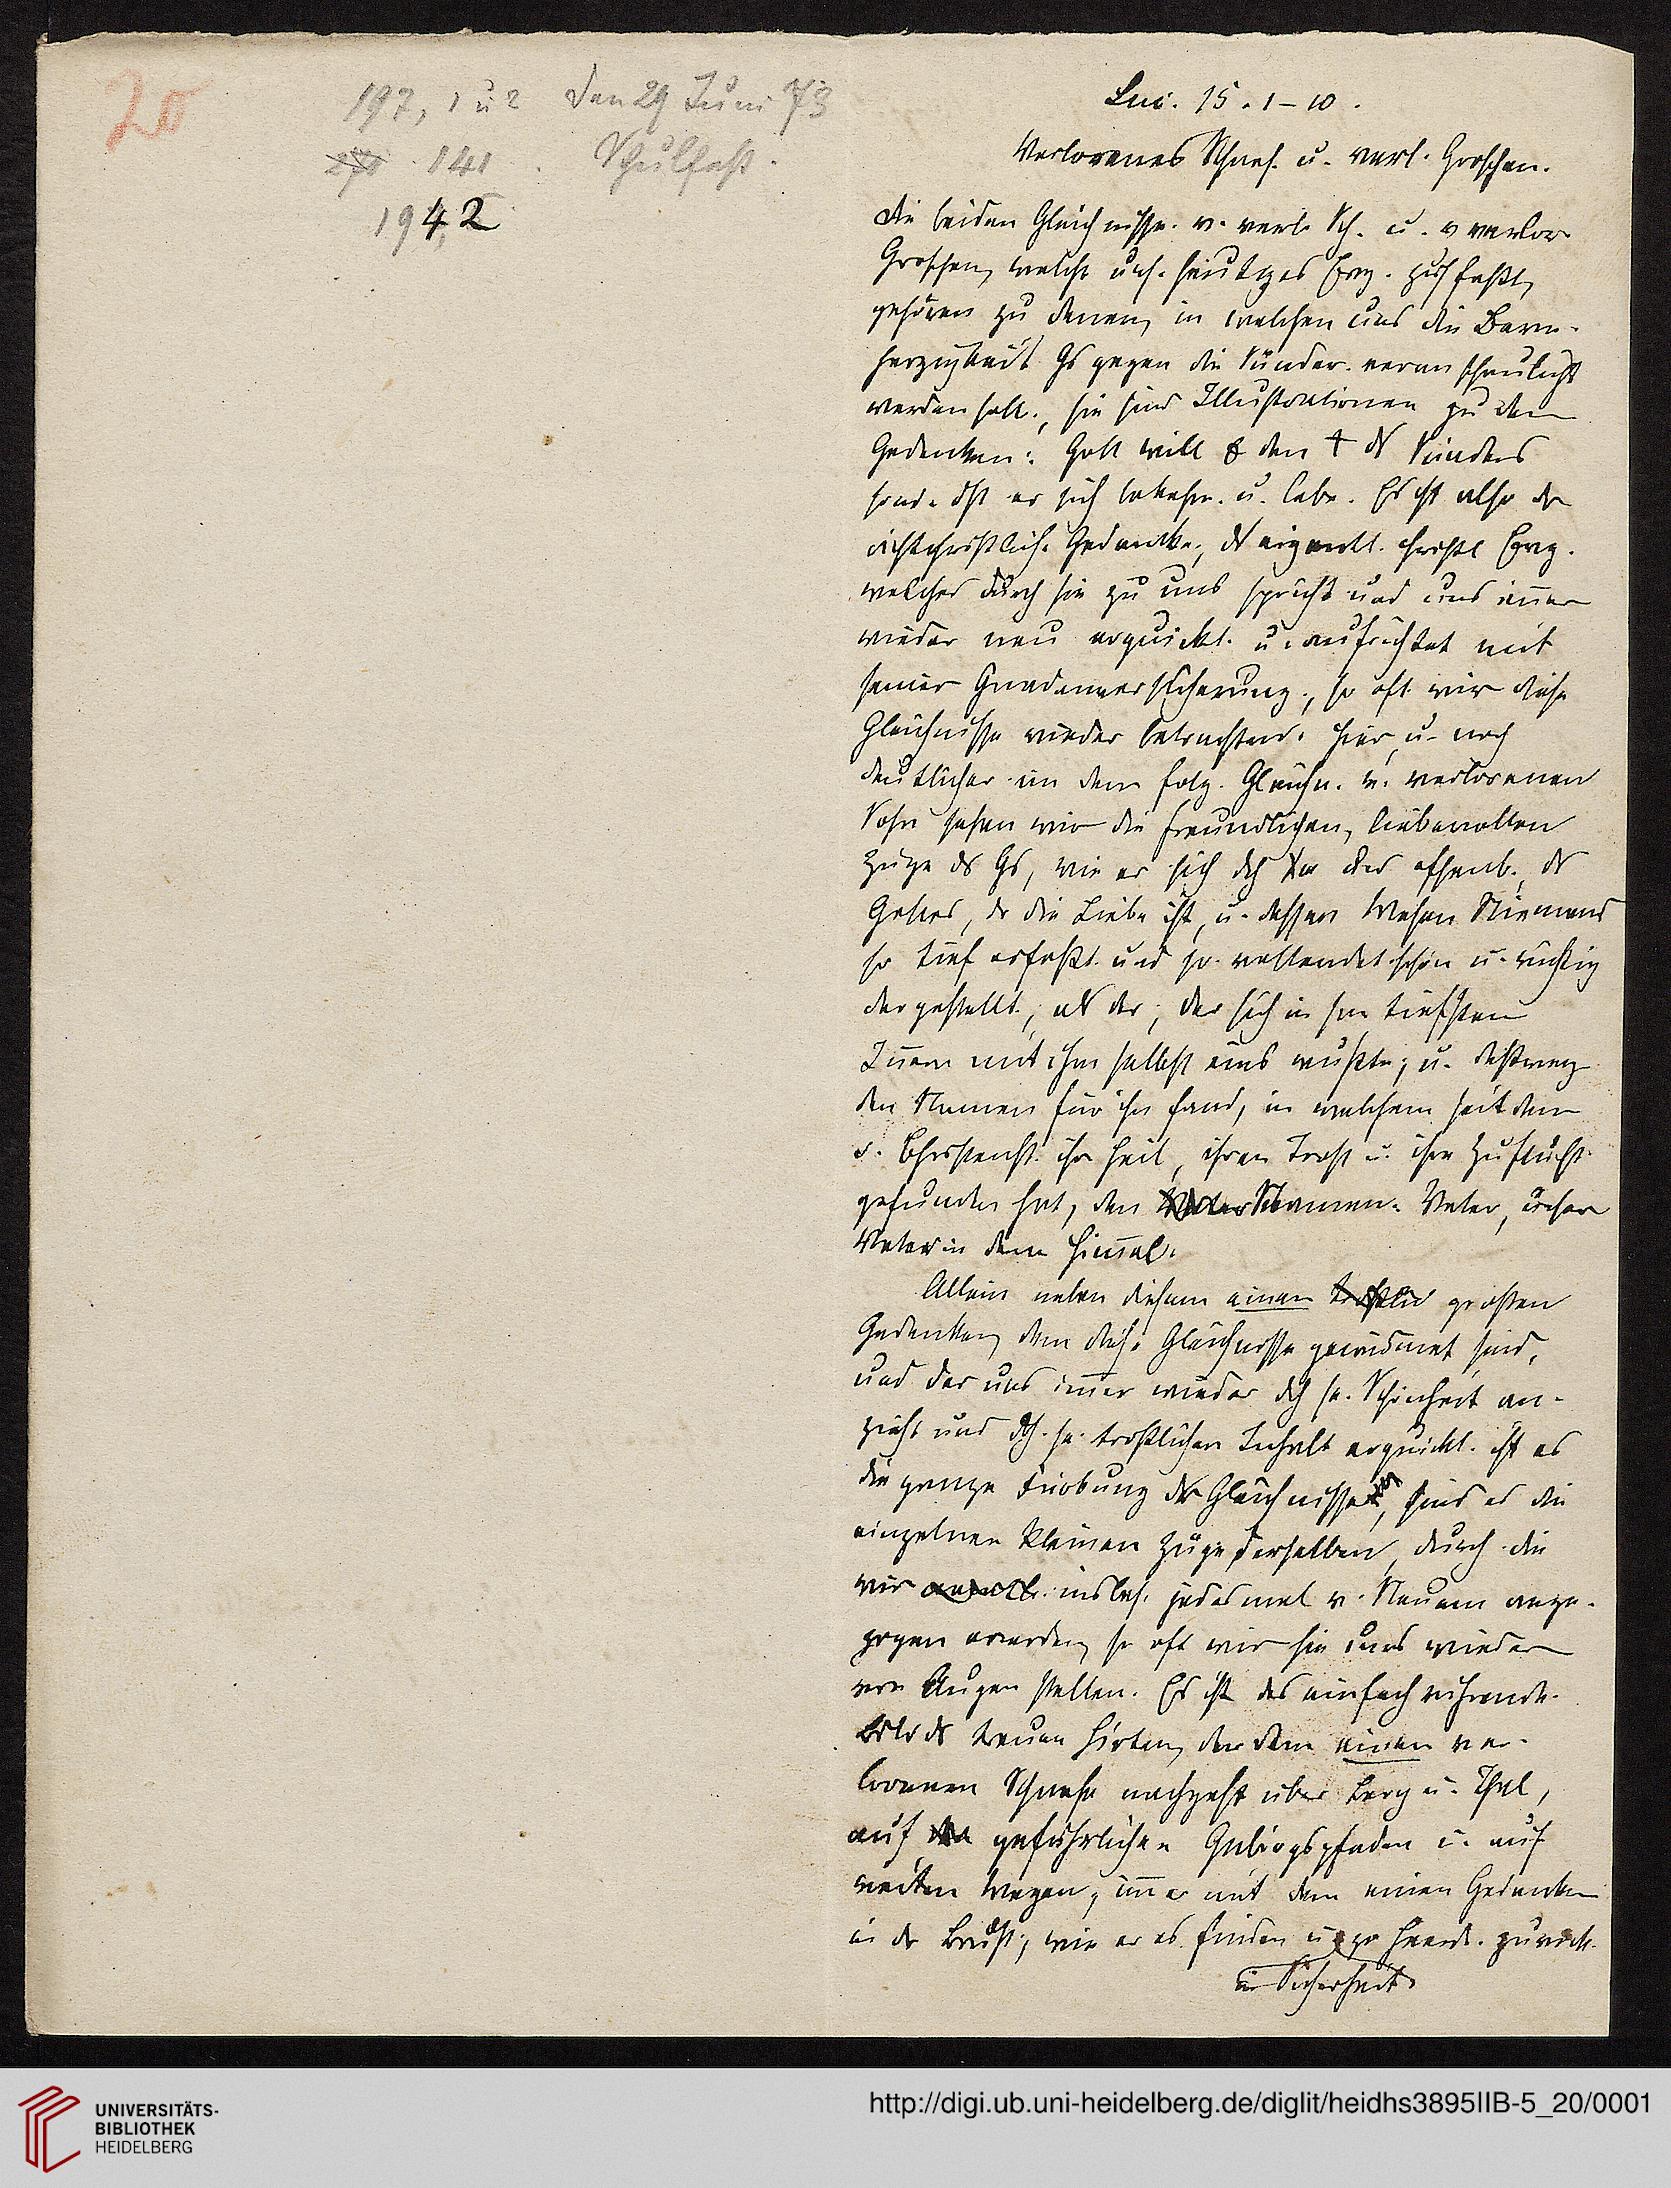 20
197, 1 u 2 den 29 Juni 73
270 141. Schulfest.
194, 2
Luc. 15. 1–10.
Verlorenes Schaf. u. verl. Groschen.
Die beiden Gleichnisse. v. verl. Sch. u. v verlor.
Groschen, welche uns. heutiges Evg. zusfaßt,
gehören zu denen, in welchen uns die Barm-
herzigkeit Gs gegen die Sünder. veranschaulicht
werden soll., sie sind Illustrationen zu dem
Gedanken: Gott will den † ds Sünders
sond. dß er sich bekehre. u. lebe. Es ist also der
ächtchristliche Gedanke, ds eigentl. christl Evg.
welches durch sie zu uns spricht und uns im̄er
wieder neu erquickt. u. aufrichtet mit
seiner Gnadenversicherung., so oft wir diese
Gleichnisse wieder betrachten. Hier, u. noch
deutlicher in dem folg. Gleichn. v. verlorenen
Sohn sehen wir die freundlichen, liebevollen
Züge ds Gs, wie er sich dch uns offenb., ds
Gottes, dr die Liebe ist, u. dessen Wesen Niemand
so tief erfaßt. und so. vollendet schön u. richtig
dargestellt, als der, der sich in sm tiefsten
In̄ern mit ihm selbst eins wußte, u. deßweg
den Namen für ihn fand, in welchem seitdem
d. Christenht. ihr Heil, ihren Trost u. ihre Zuflucht
gefunden hat, den Namen: Vater, unser
Vater in dem Him̄el.
Allein neben diesem einen großen
Gedanken, dem diese Gleichnisse gewidmet sind,
und der uns im̄er wieder dch se. Schönheit an-
zieht und dch. se. trostlichen Inhalt erquickt. ist es
die ganze Färbung der Gleichnisse, sind es die
einzelnen kleinen Züge derselben, durch die
wir insbes. jedesmal v. Neuem ange-
zogen werden, so oft wir sie uns wieder
vor Augen stellen. Es ist das einfach rührende
Bild ds treuen Hirten, der dem einen ver-
lorenen Schafe nachgeht über Berg u. Thal,
auf gefährlichen Gebirgspfaden u. auf
weiten Wegen, im̄er mit dem einen Gedanken
in der Brust, wie er es finden u zr Heerde. zurück
in Sicherheit
UNIVERSITÄTS-
BIBLIOTHEK
HEIDELBERG
http://digi.ub.uni-heidelberg.de/diglit/heidhs3895IIB-5_20/0001